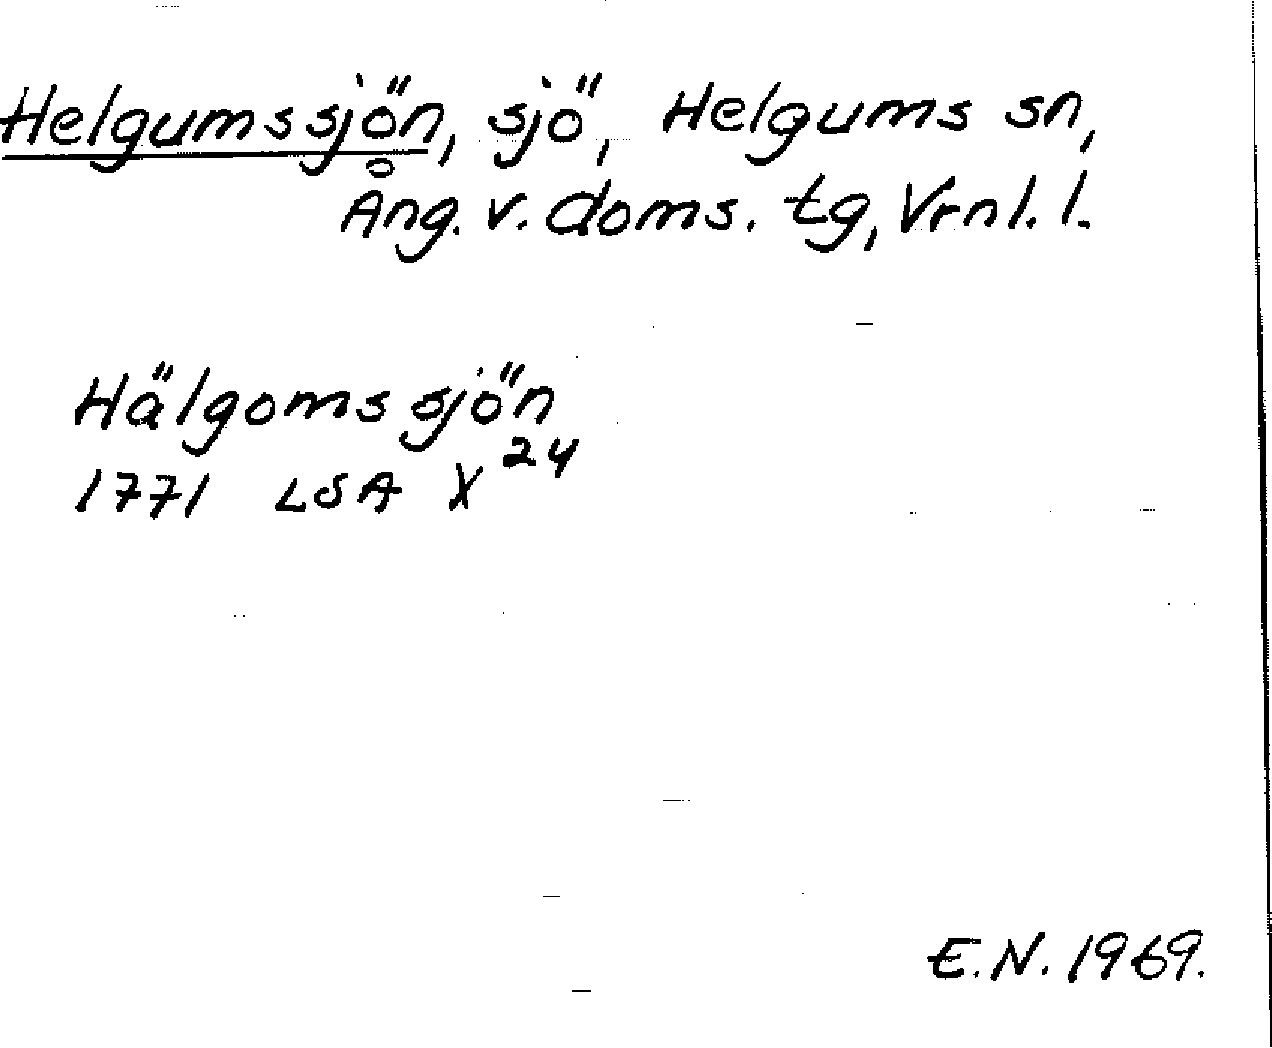 Helgumssjön, sjö, Helgums sn,
Ång. v. doms. tg, Vrnl. l.
Hälgoms sjön
1771 LSA X 24
E.N. 1969.